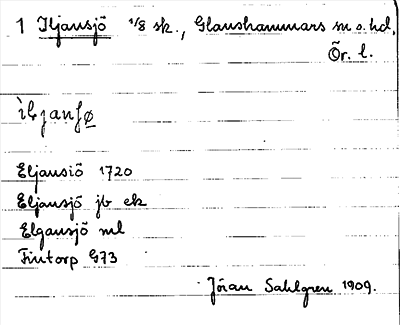 1 Iljansjö 1/8 sk., Glanshammars sn o. hd,
Ör. l.
ìljanʃø
Eljansiö 1720
Eljansjö jb ek
Elgansjö ml
Finntorp G73
Jöran Sahlgren 1909.